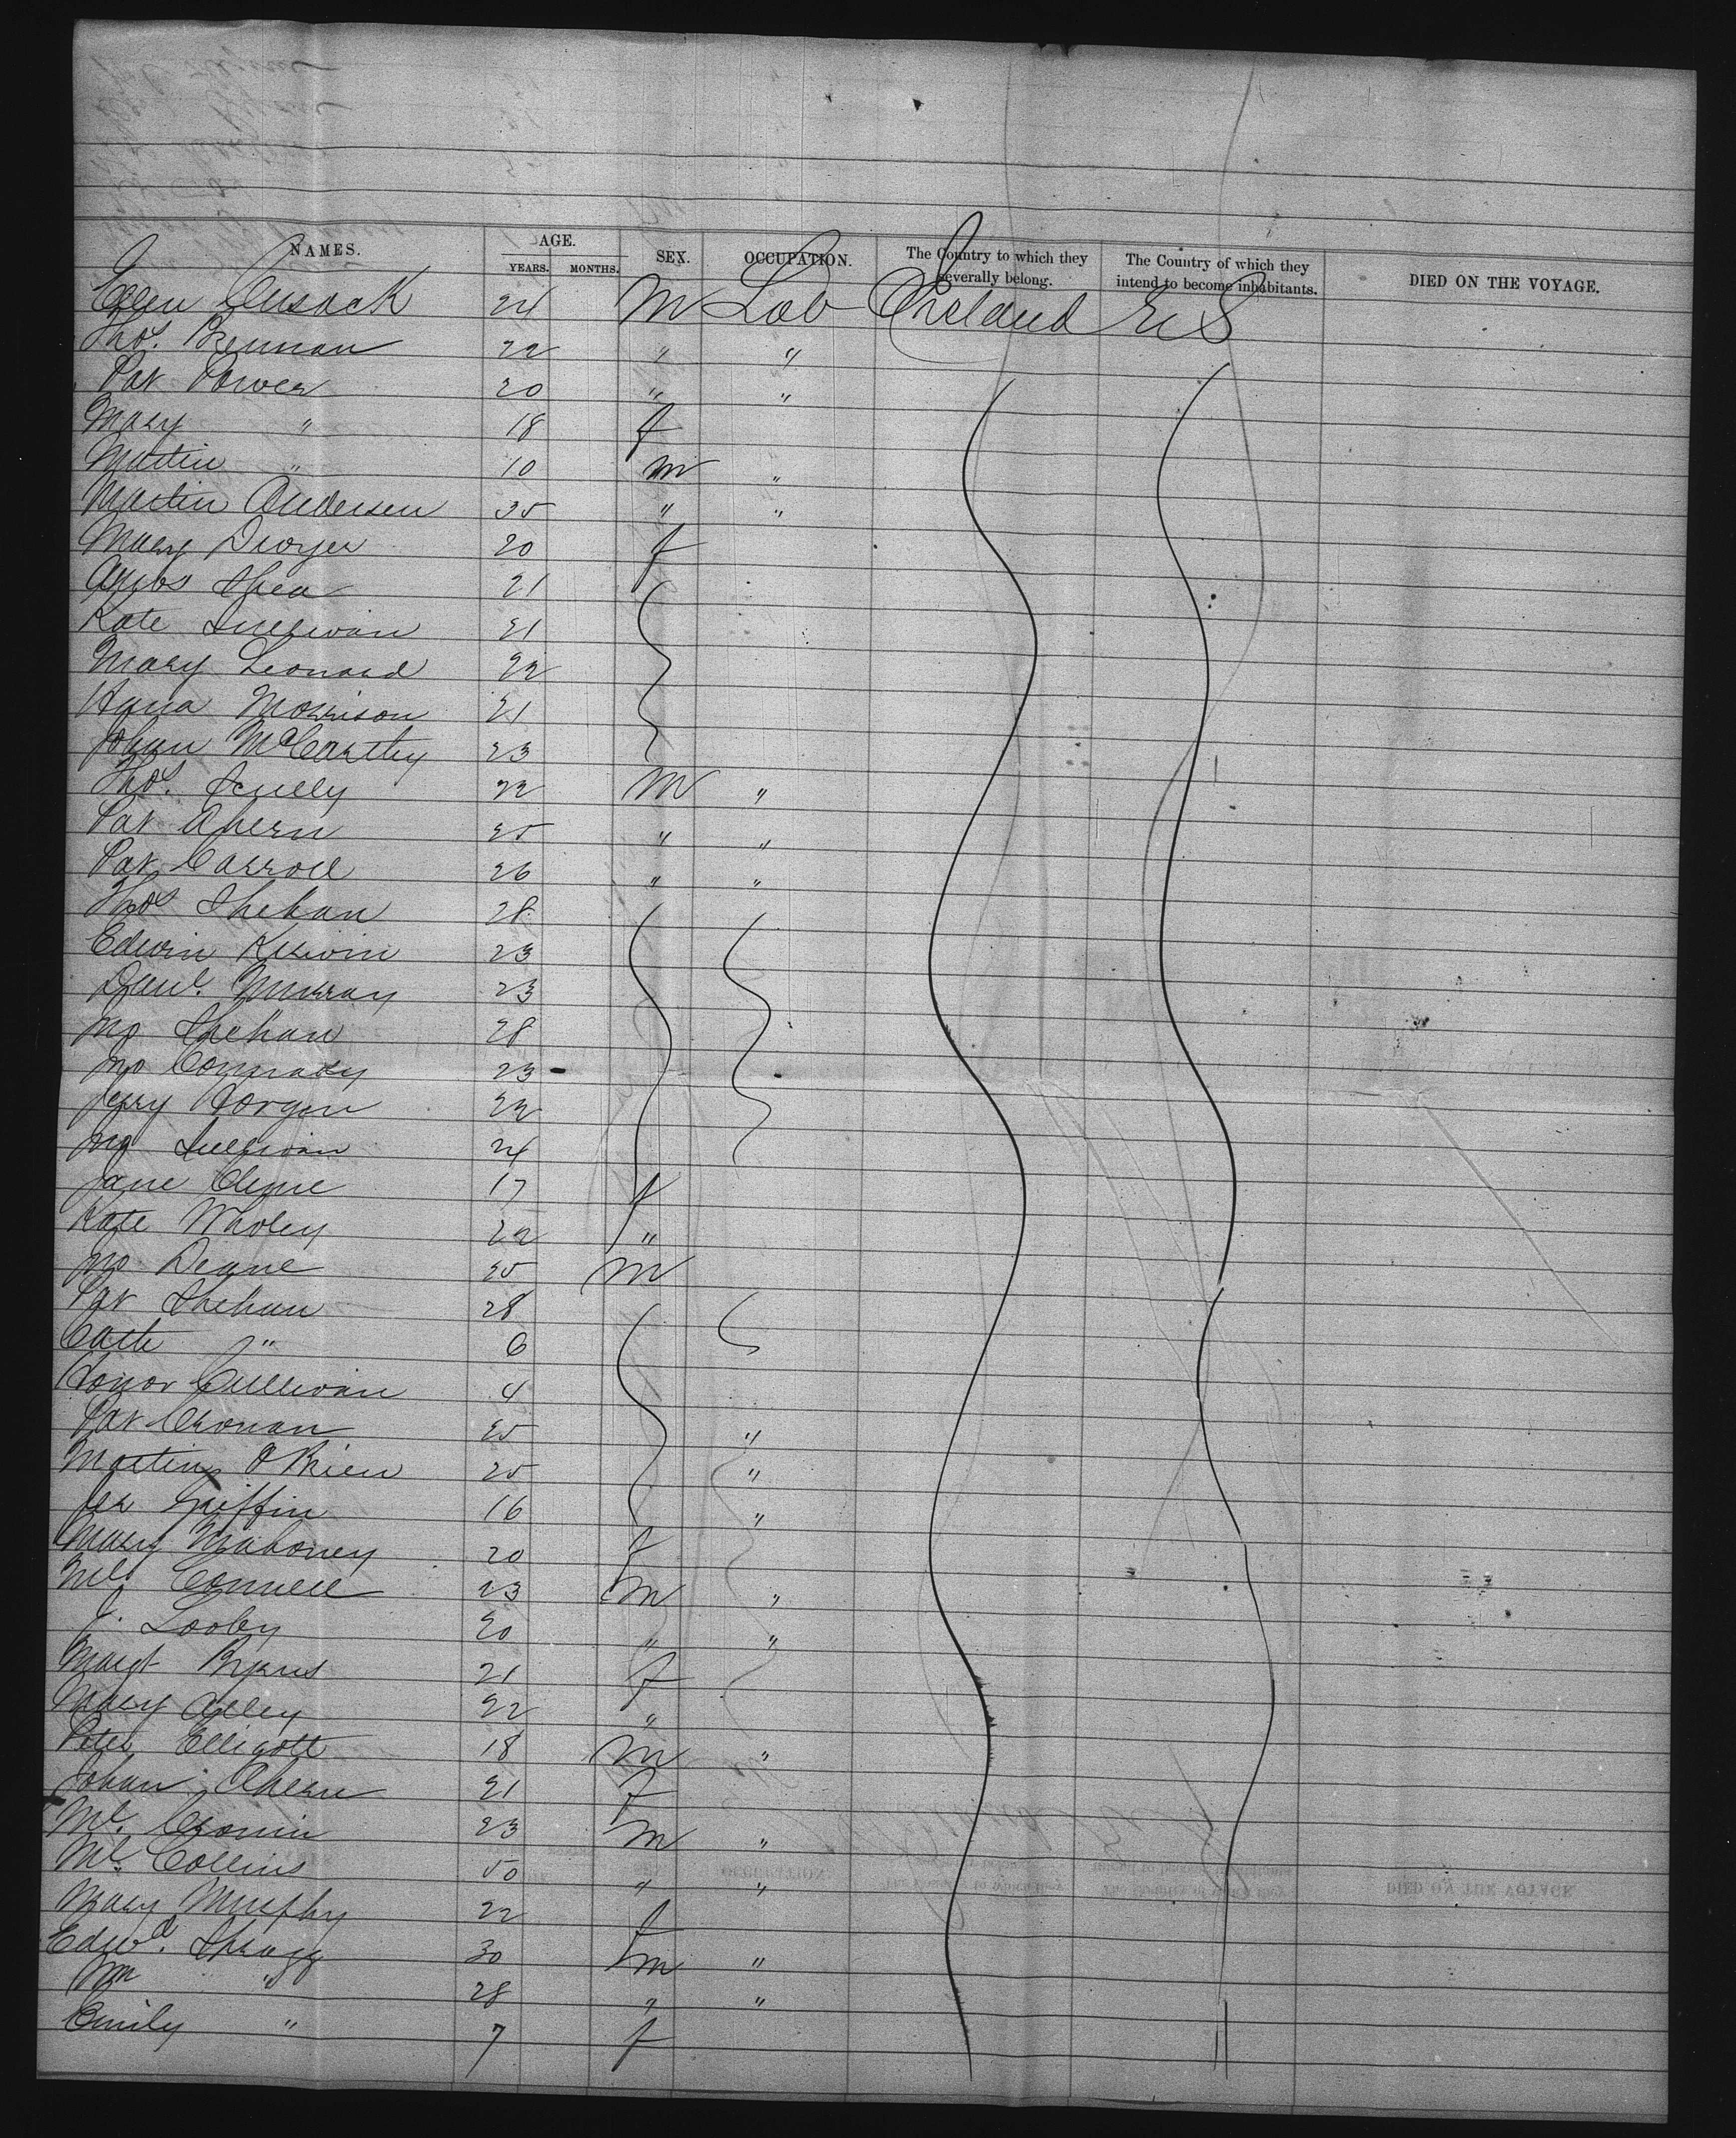 NAMES. AGE. SEX. OCCUPATION. The Country to which they severally belong. The Country of which they intend to become inhabitants. DIED ON THE VOYAGE.
YEARS. MONTHS.
Ellen Cusack 24 M Lab Ireland U S
Thos. Brennan 22 " "
Pat Power 20 " "
Mary " 18 f
Martin " 10 m "
Martin Andersen 35 " "
Mary Dwyer 20 f
Shea 21
Kate Sullivan 21
Mary Leonard 22
Hana Morrison 21
Johan McCarthy 23
Thos. Scully 22 M "
Pat Ahern 25 " "
Pat Carroll 26 " "
Thos Shehan 28
Edwin Kerwin 23
Danl. Murray 23
Jno Shehan 28
Jno 23
Jerry 22
Jno Sullivan 24
Jane 17 f
Kate Wholey 22 "
Jno Deane 25 M
Pat Shehan 28
Cath " 6
Conor Cullivan 4
Pat Cronan 25 "
Martin O Brien 25 "
Jer Griffin 16 "
Mary Mahoney 20 f
Ml. Connell 23 m "
J. Looby 20 " "
Margt 21 f
Mary 22 "
Peter Elligott 18 M "
Johan Ahern 21 f
Ml. Cronin 23 m "
Ml. Collins 50 " "
Mary Murphy 22 f
Edwd. Shragg 30 m "
Wm " 28 " "
Emily " 7 f